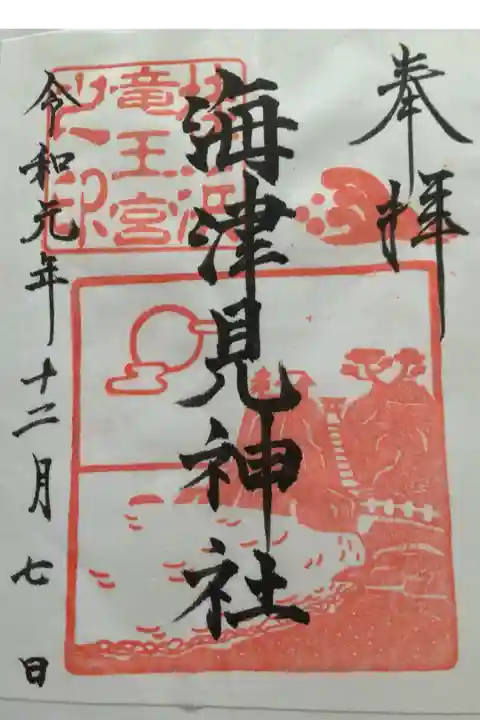 奉拝
海津見神社
竜王宮
之印
令和元年十二月七日